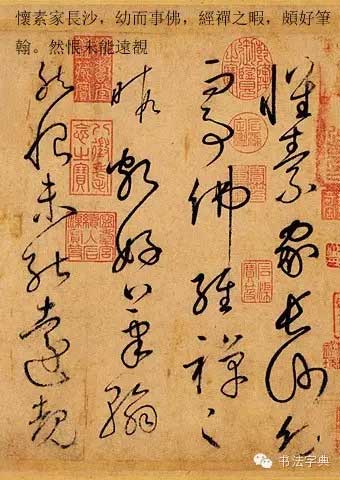 懷素家長沙，幼而事佛，經禪之暇，頗好筆
翰。然恨未能遠覩
懷素家長沙幼
而事佛經禪之
暇頗好筆翰
然恨未能遠覩
书法字典